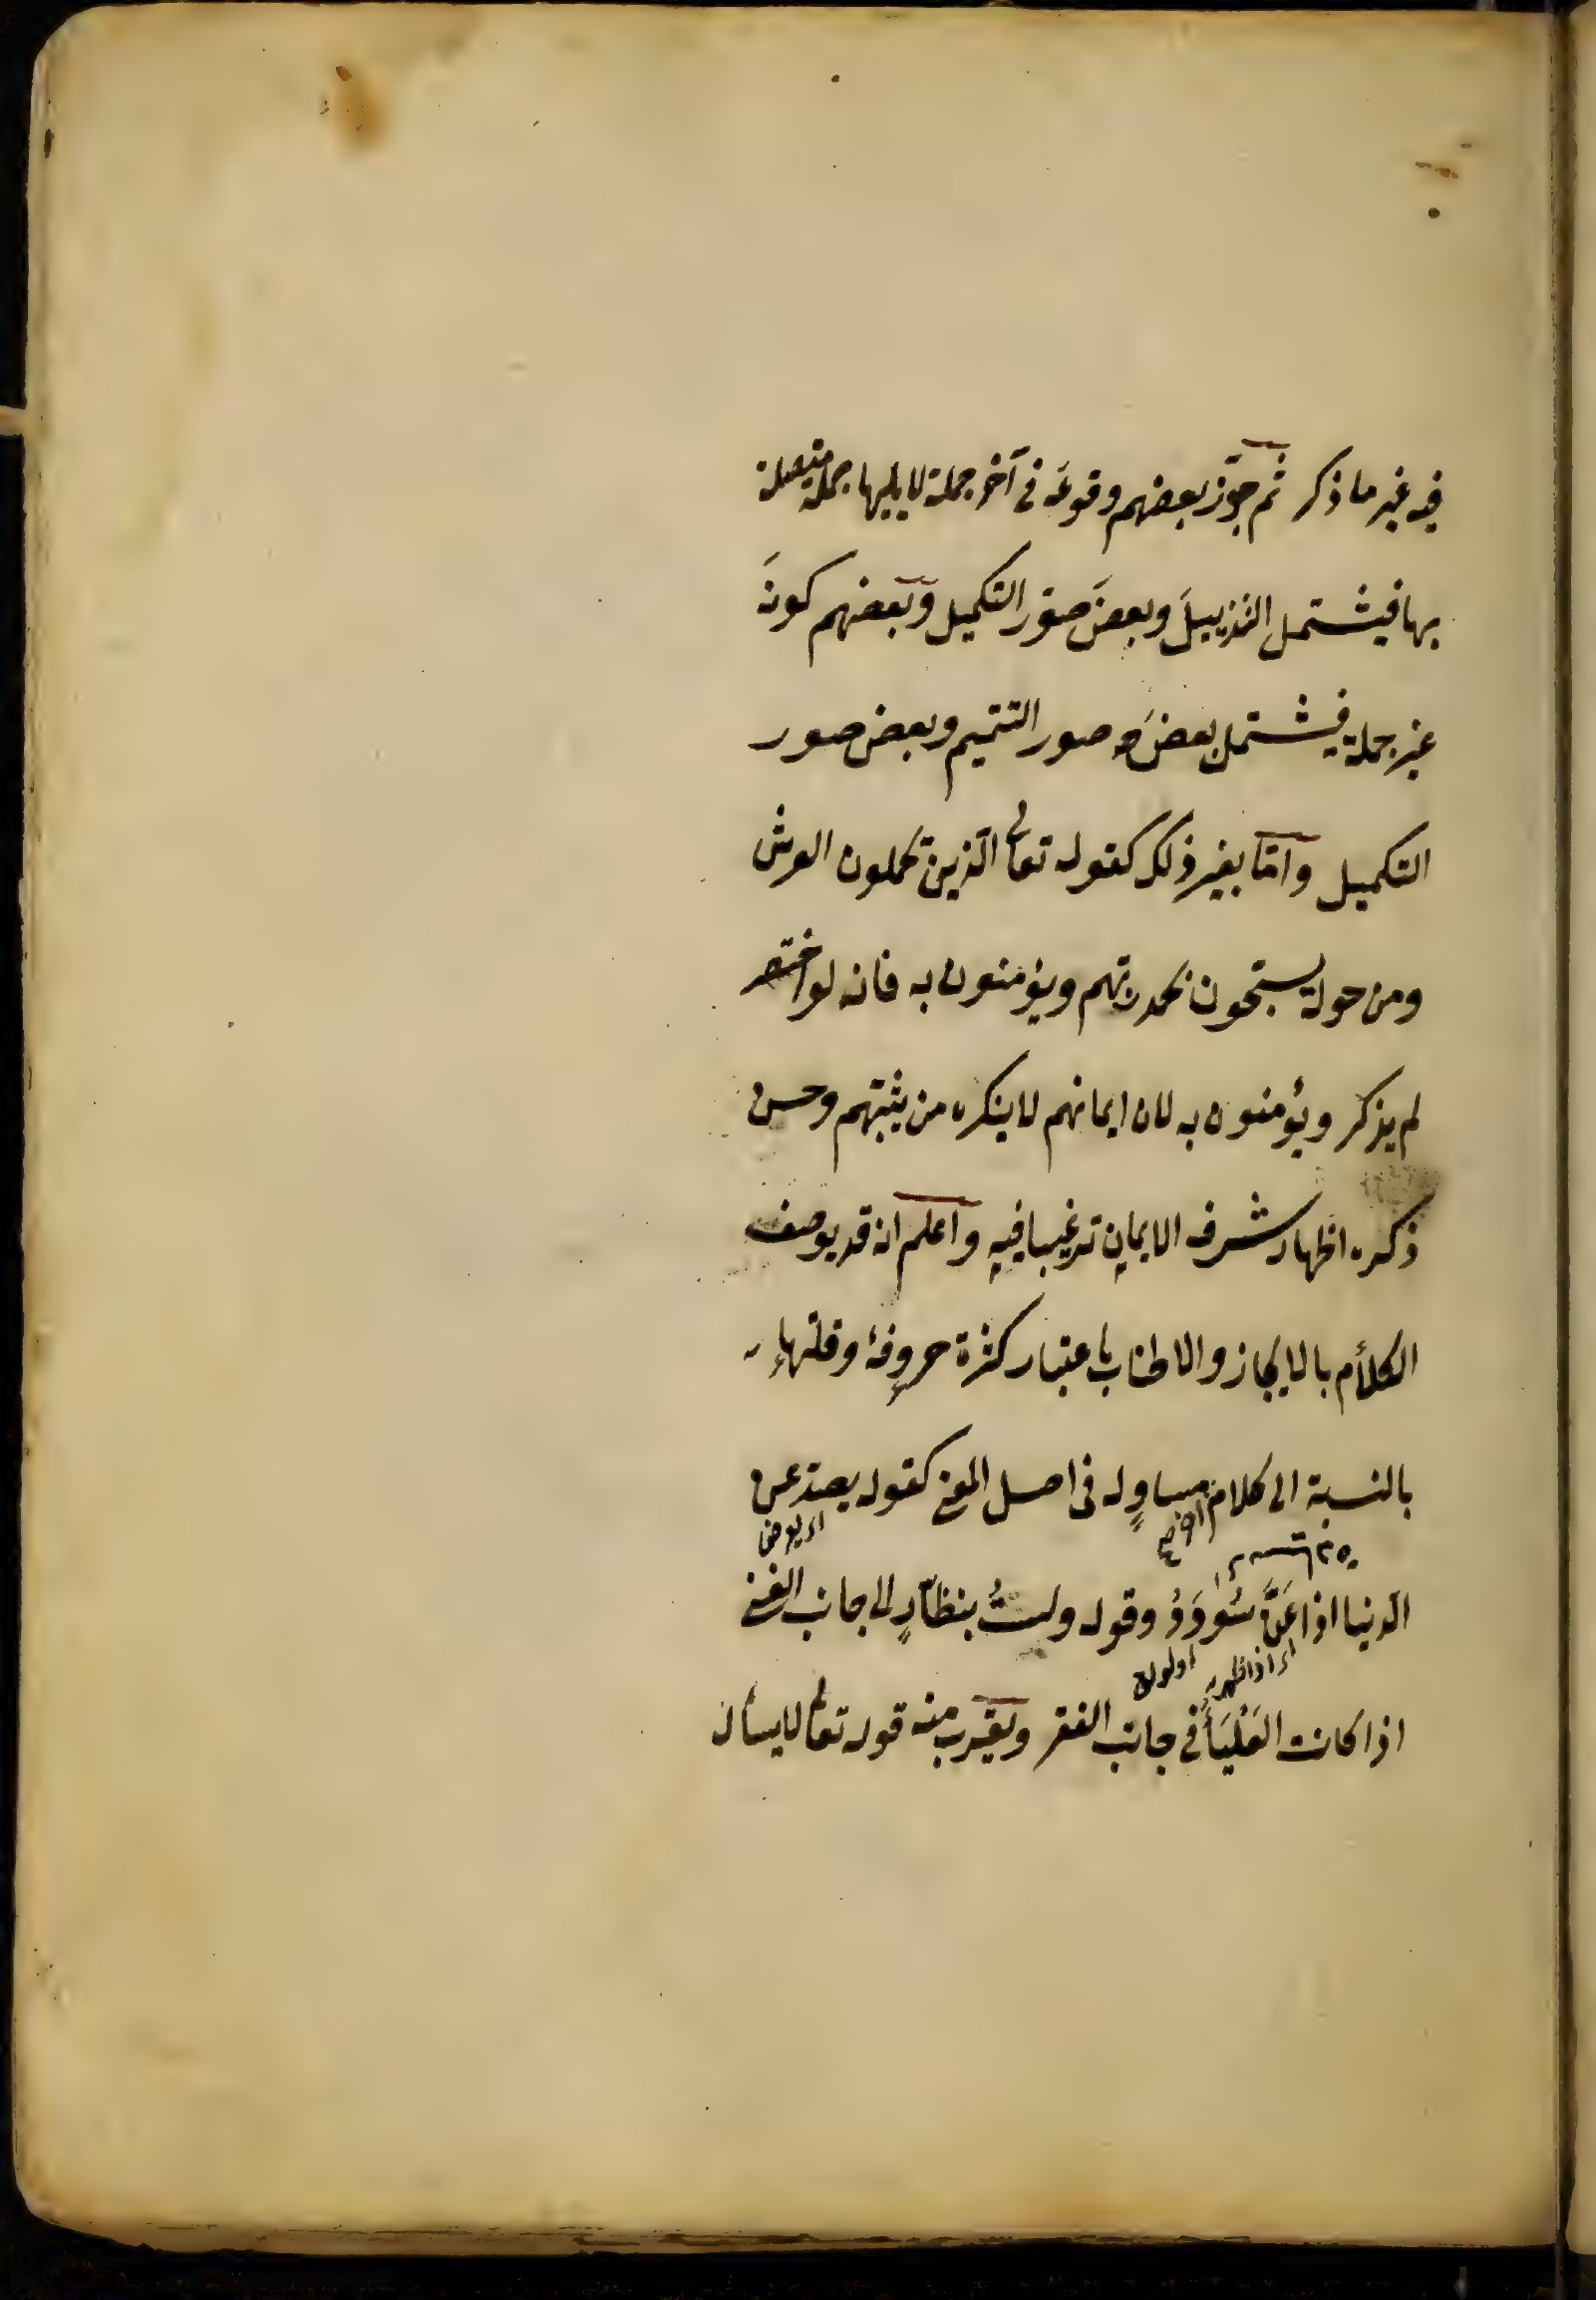 فيه غير ما ذكر ثم جوّز بعضهم وقوعَه فى آخر جملة لا يليها جملة متصلة
بها فيشتمل التذييلَ وبعضَ صور التكميل وبعضهم كونَه
غير جملة فيشتمل بعضَ صور التتميم وبعض صور
التكميل وامّا بغير ذلك كقوله تعالى الّذين يحملون العرش
ومن حوله يسبّحون بحمد ربّهم ويؤمنون به فانه لو اختصر
لم يذكر ويؤمنون به لان ايمانهم لا ينكره من يثبتهم وحسن
ذكره اظهار شرف الايمان ترغيبا فيه واعلم انه قد يوصف
الكلام بالايجاز والاطناب باعتبار كثرة حروفه وقلتها
بالنسبة الى كلام آخر مساوٍ له فى اصل المعنى كقوله يصدّ عن
اى يعرض
الدنيا اذا عَنَّ سُوددُ وقوله ولستُ بنظّارٍ الى جانب الغنى
اى اذا ظهر
اذا كانت العَلْيَاءُ فى جانب الفقر ويقرب منه قوله تعالى لا يسأل